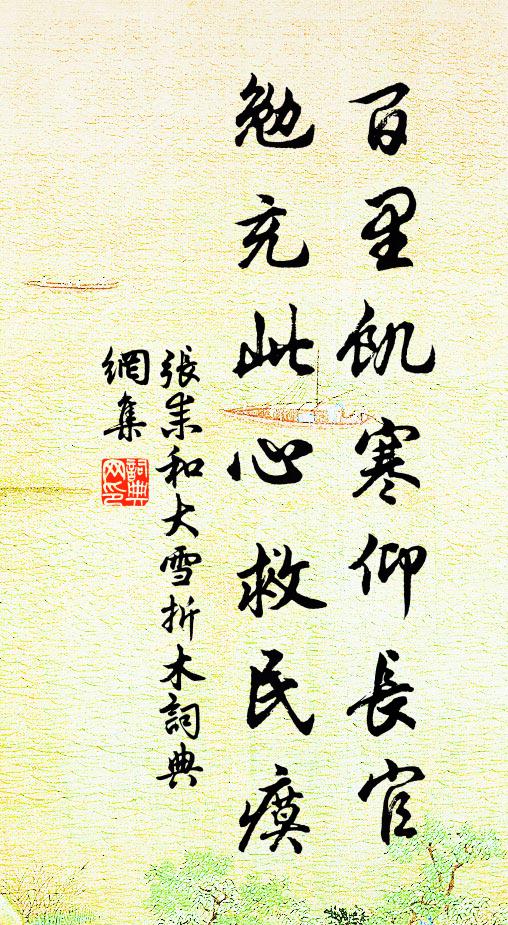 百里飢寒仰長官
勉充此心救民瘼
張耒和大雪折木詞典
網集
詞典
网印